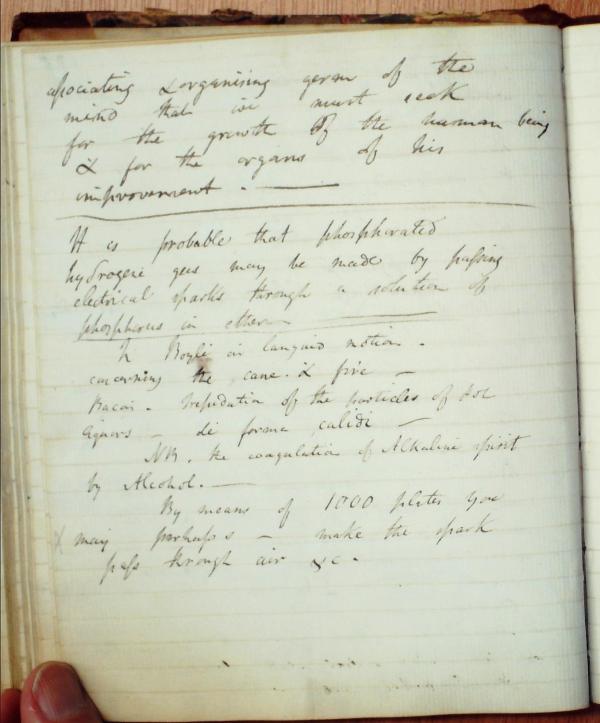 associating & organising germ of the
mind that we must seek
for the growth of the human being
& for the organs of his
improvement. —
It is probable that phosphurated
hydrogene gas may be made by passing
electrical sparks through a solution of
phosphorus in ether —
Boyle on languid motion.
concerning the cane & fire —
Bacon. trepidation of the particles of
liquors — de forma calidi —
NB. the coagulation of Alkaline spirit
by Alcohol. —
By means of 1000 plates you
may perhaps — make the spark
pass through air &c.